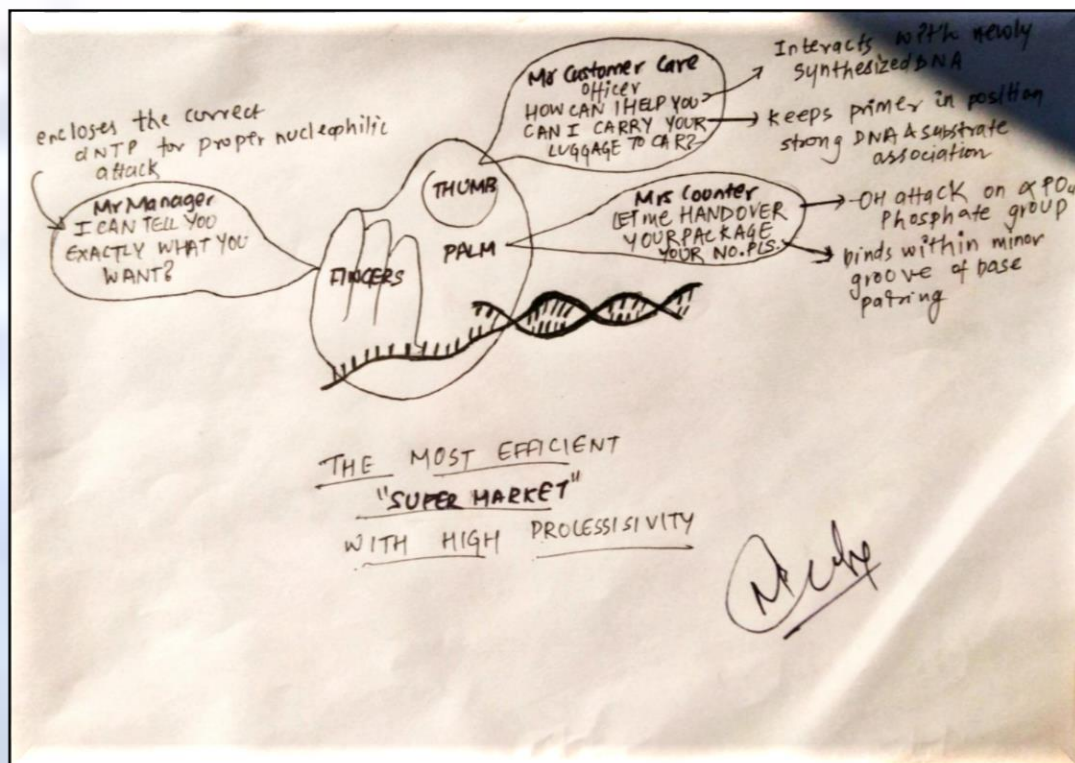 encloses the correct
dNTP for proper nucleophilic
attack
Mr Manager
I CAN TELL YOU
EXACTLY WHAT YOU
WANT?
Mr Customer Care
officer
HOW CAN I HELP YOU
CAN I CARRY YOUR
LUGGAGE TO CAR?
Interacts with newly
synthesized DNA
keeps primer in position
strong DNA & substrate
association
THUMB
PALM
FINGERS
Mrs Counter
LET me HANDOVER
YOUR PACKAGE
YOUR NO. PLS.
-OH attack on α PO4
Phosphate group
binds within minor
groove of base
pairing
THE MOST EFFICIENT
"SUPER MARKET"
WITH HIGH PROCESSISIVITY